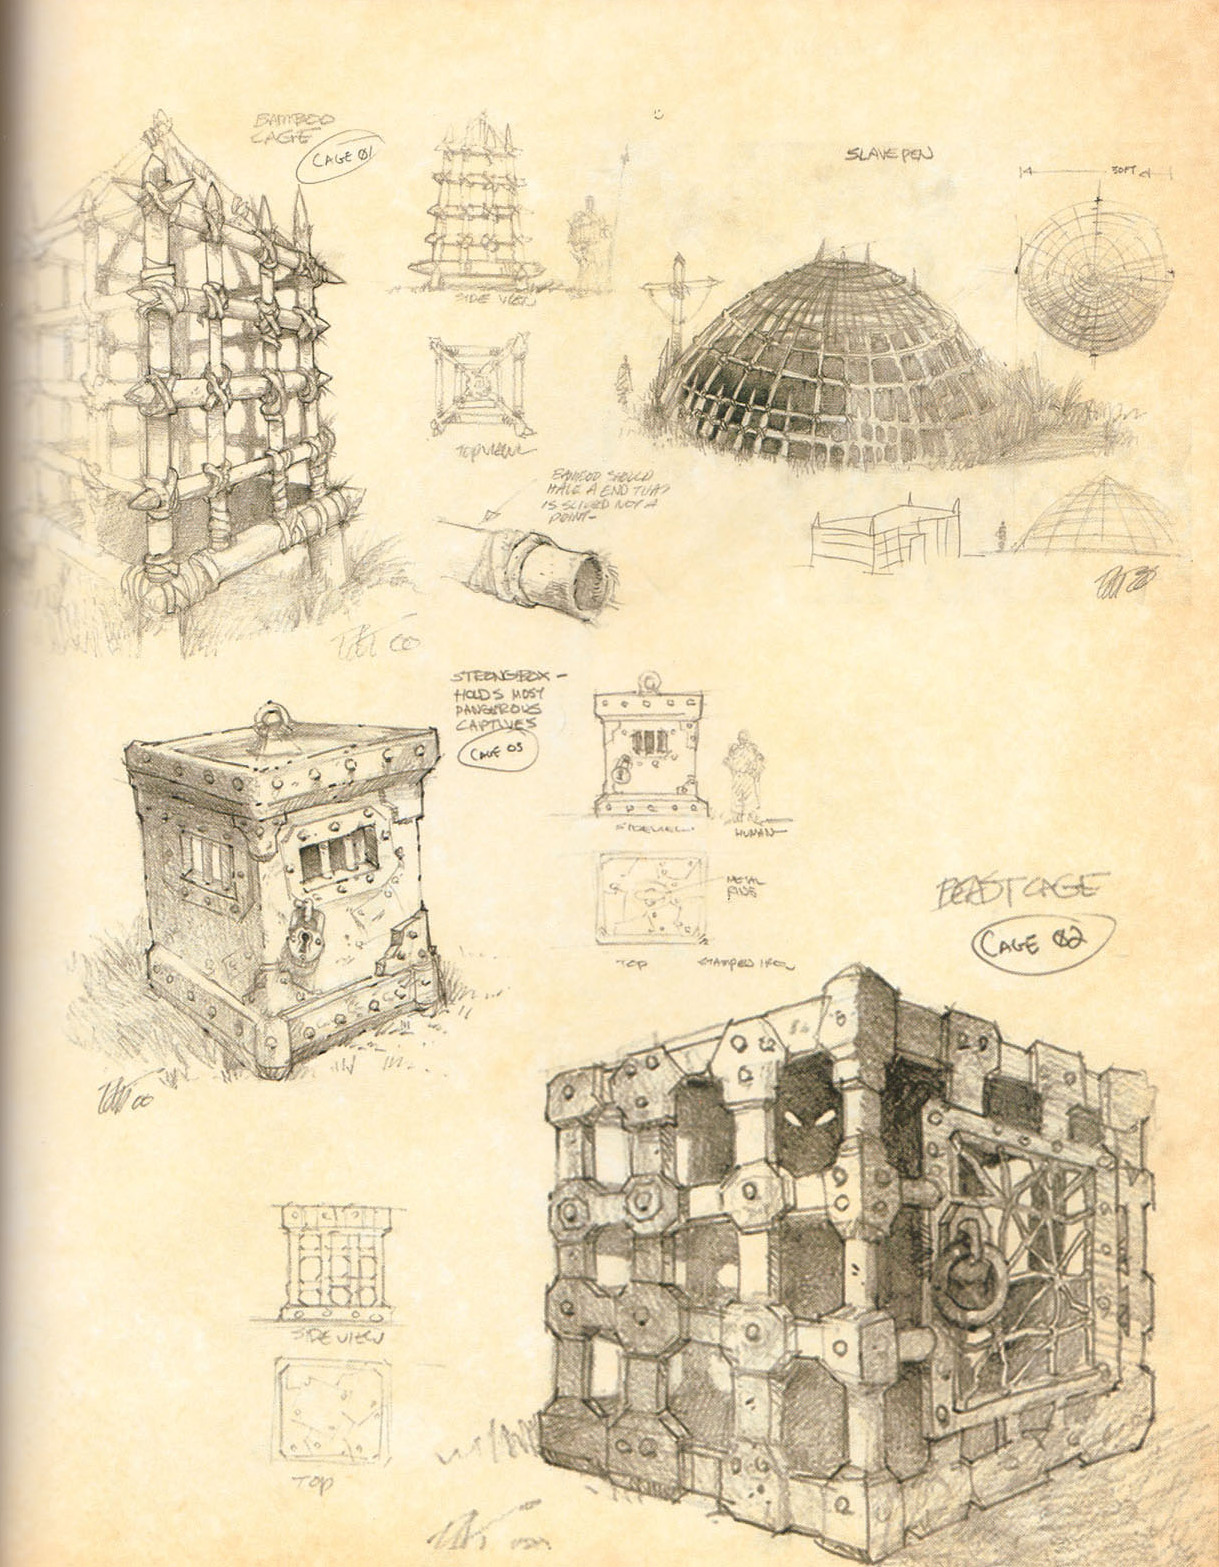 BAMBOO
CAGE
CAGE 01
SIDE VIEW
TOP VIEW
BAMBOO SHOULD
HAVE A END THAT
IS SLICED NOT A
POINT-
SLAVE PEN
30FT
STRONGBOX -
HOLDS MOST
DANGEROUS
CAPTIVES
CAGE 03
SIDEVIEW
HUMAN
METAL
RING
TOP
STAMPED IRON
BEAST CAGE
CAGE 02
SIDE VIEW
TOP